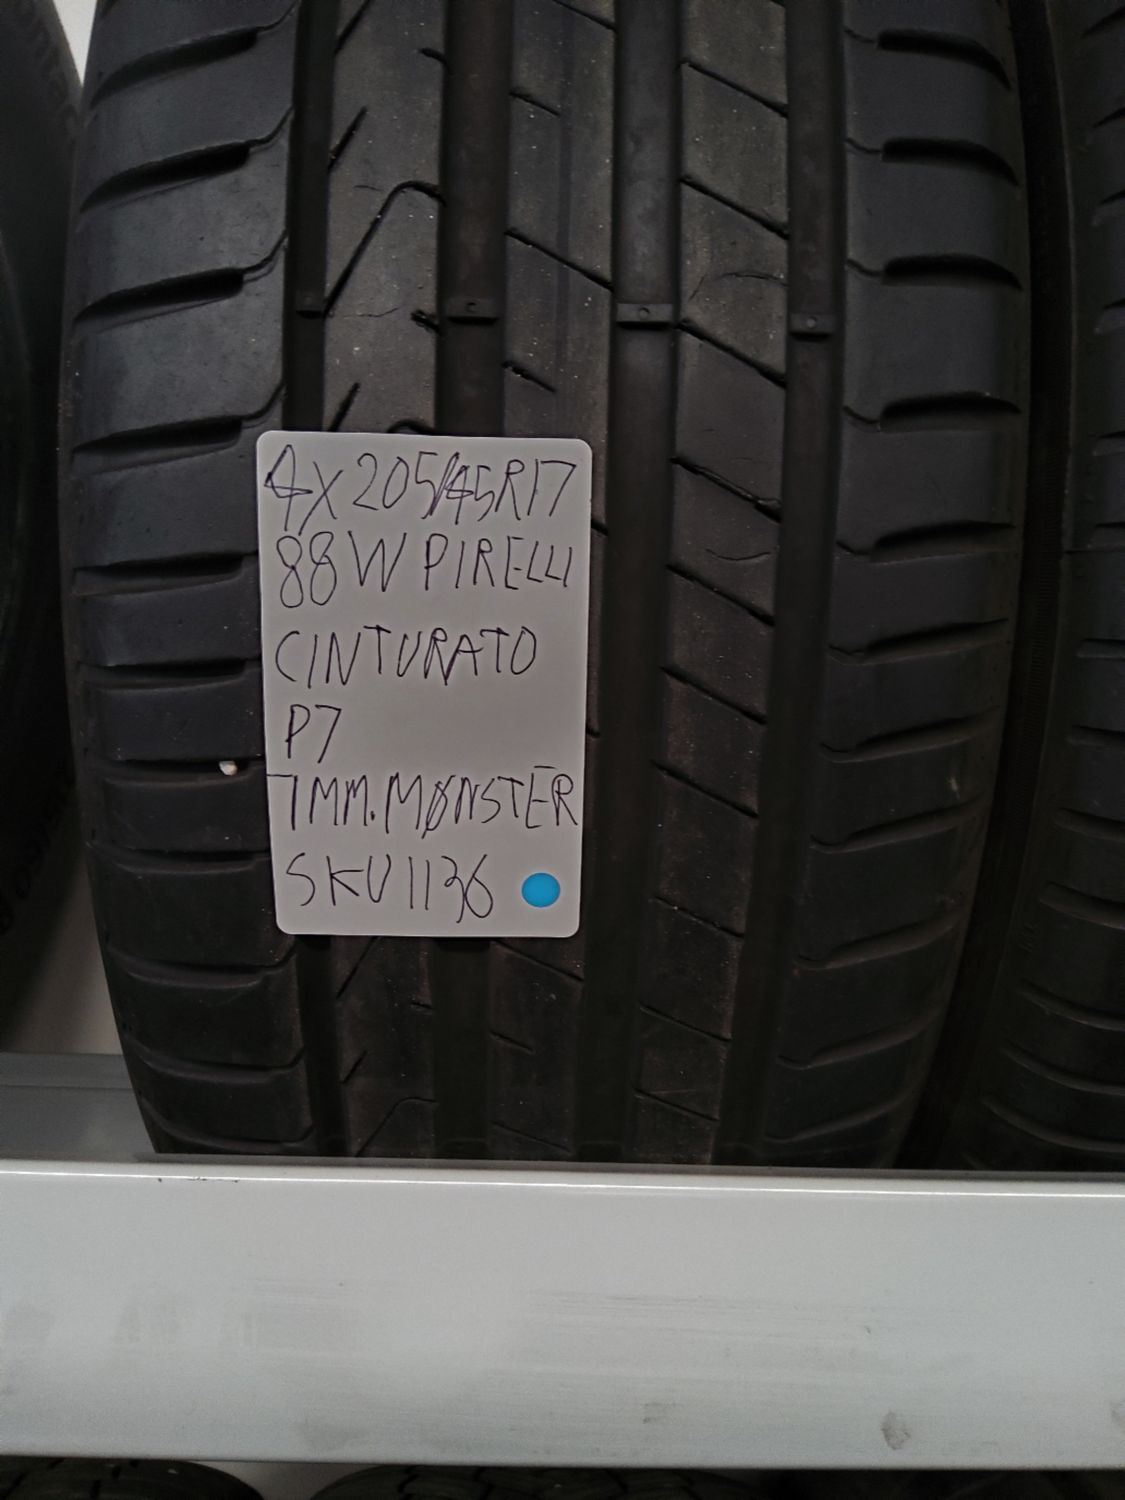 4X205/45R17
88W PIRELLI
CINTURATO
P7
7MM.MØNSTER
SKU1136